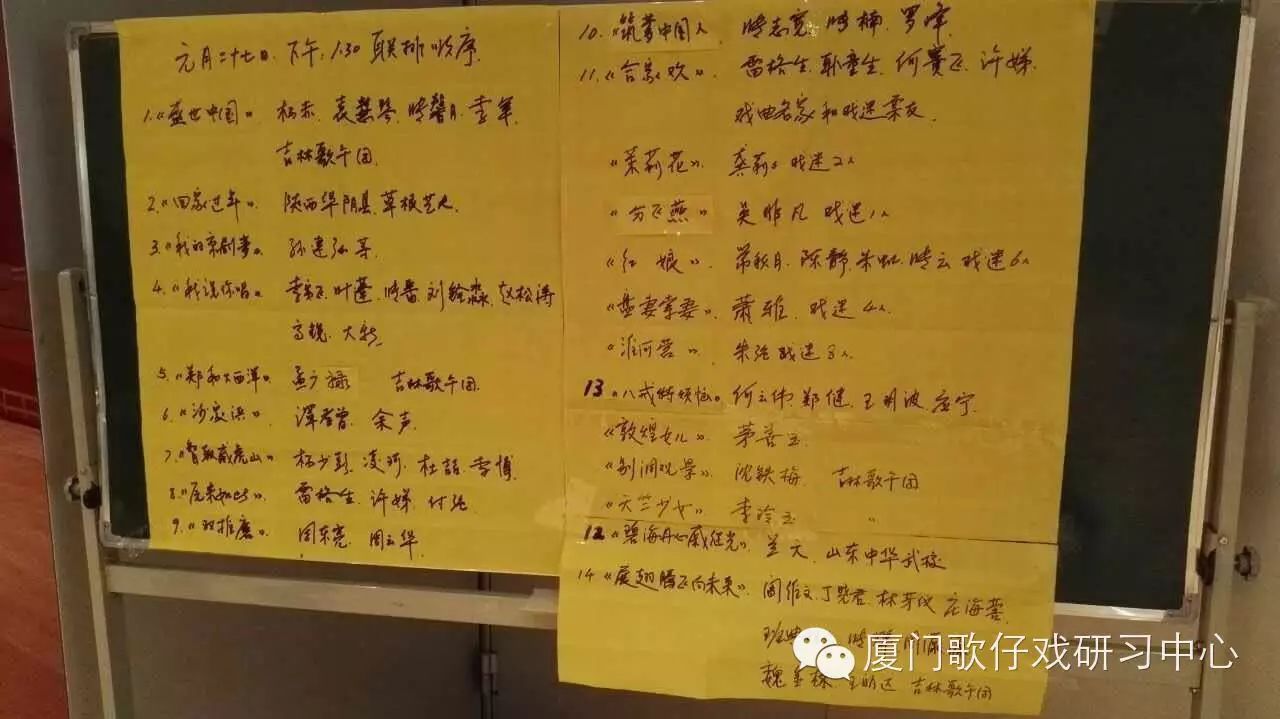 元月二十七日.下午.1:30 联排顺序.
1.《盛世中国》 杨赤.袁慧琴.李军
吉林歌午团.
2.《回家过年》. 陕西华阴县.草根艺人.
3.《我的京剧梦》. 孙建弘等.
4.《我说你唱》. 叶蓬.刘铨淼.赵松涛
高锐.大新.
5.《郑和下西洋》. 孟广禄 吉林歌午团.
6.《沙家浜》. 谭孝曾.余声.
7.《智取威虎山》. 杨少彭.凌珂.杜喆.李博.
8.《原来如此》. 雷格生.许娣.付强.
9.《双推磨》. 周东亮.周云华.
10.《筑梦中国人》 罗峰.
11.《合家欢》 雷格生.耿为生.何赛飞.许娣.
戏曲名家和戏迷票友.
《茉莉花》. 龚莉 戏迷2人
《分飞燕》 吴非凡 戏迷1人
《红娘》. 常秋月.陈静.朱虹. 戏迷6人
《盘妻索妻》. 萧雅. 戏迷4人.
《淮河营》. 朱强 戏迷3人.
13《八戒特烦恼》 何云伟.郑健.王玥波.应宁.
《敦煌女儿》. 茅善玉.
《别洞观景》 沈铁梅. 吉林歌午团
《天竺少女》 李玲玉 〃
12.《碧海丹心戚继光》. 兰天.山东中华武校
14.《展翅腾飞向未来》. 阎维文.丁晓君.林芳仪.庄海蓉.
吉林歌午团
厦门歌仔戏研习中心